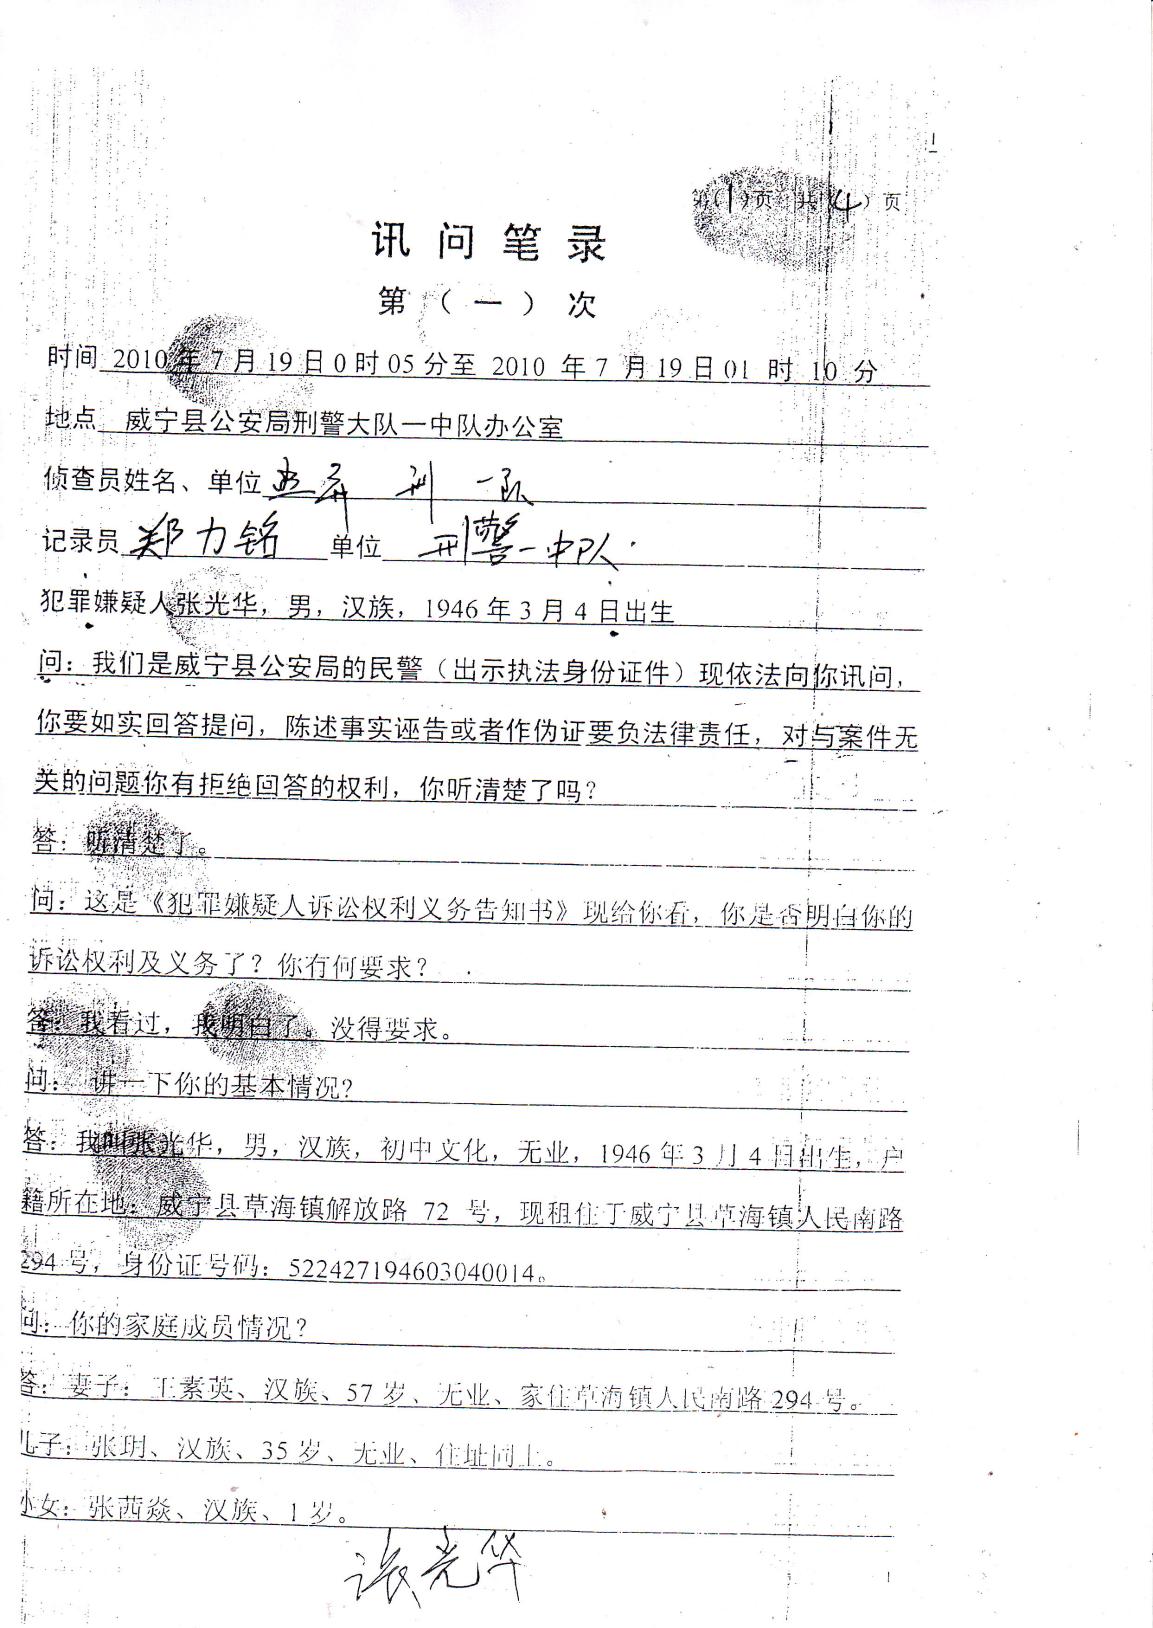 第（1）页 共（4）页
讯问笔录
第（一）次
时间 2010年7月19日0时05分至 2010 年7 月19日01 时 10 分
地点 威宁县公安局刑警大队一中队办公室
侦查员姓名、单位 刑 一队
记录员 郑力铭 单位 刑警一中队.
犯罪嫌疑人张光华，男，汉族，1946年3月4日出生
问：我们是威宁县公安局的民警（出示执法身份证件）现依法向你讯问，
你要如实回答提问，陈述事实诬告或者作伪证要负法律责任，对与案件无
关的问题你有拒绝回答的权利，你听清楚了吗？
答：听清楚了。
问：这是《犯罪嫌疑人诉讼权利义务告知书》现给你看，你是否明白你的
诉讼权利及义务了？你有何要求？
答：我看过，我明白了。没得要求。
问： 讲一下你的基本情况？
答：我叫张光华，男，汉族，初中文化，无业，1946年3月4日出生，户
籍所在地：威宁县草海镇解放路 72 号，现租住于威宁县草海镇人民南路
294号，身份证号码：522427194603040014。
问：你的家庭成员情况？
答：妻子：王素英、汉族、57岁、无业、家住草海镇人民南路294号。
儿子：张玥、汉族、35岁、无业、住址同上。
孙女：张茜焱、汉族、1岁。
张光华